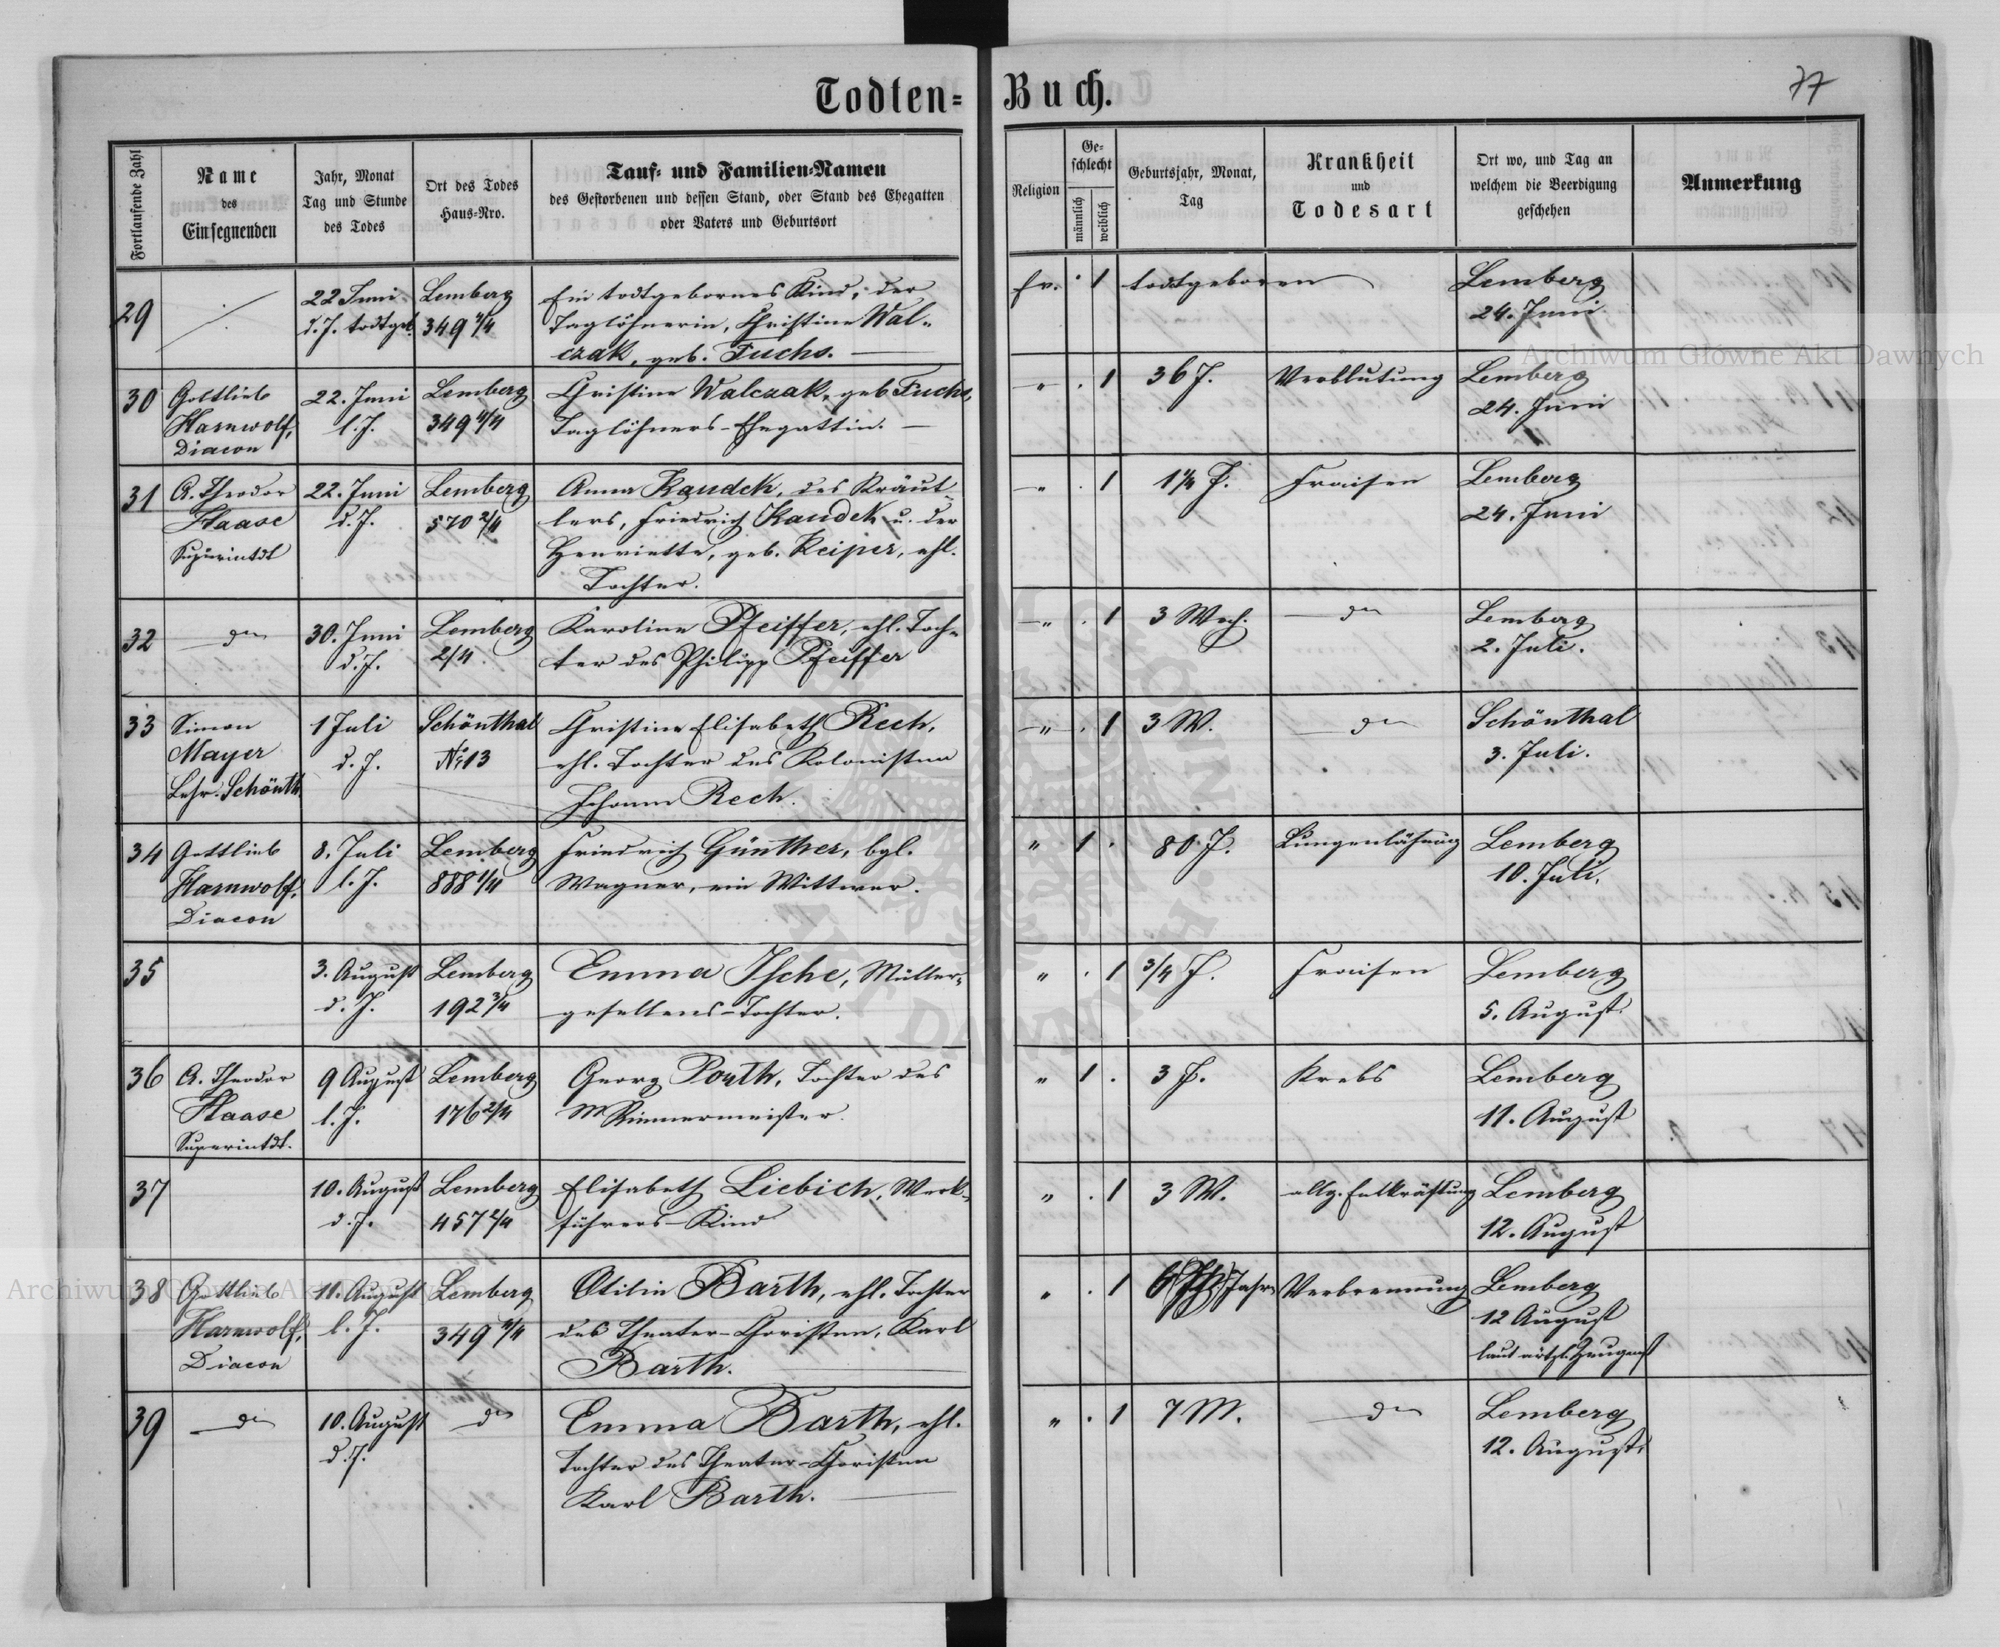 Todten-Buch.
77
Fortlaufende Zahl
Name
des
Einsegnenden
Jahr, Monat
Tag und Stunde
des Todes
Ort des Todes
Haus-Nro.
Tauf- und Familien-Namen
des Gestorbenen und dessen Stand, oder Stand des Ehegatten
oder Vaters und Geburtsort
Religion
Ge-
schlecht
männlich
weiblich
Geburtsjahr, Monat,
Tag
Krankheit
und
Todesart
Ort wo, und Tag an
welchem die Beerdigung
geschehen
Anmerkung
29
22 Juni
d. J. todtgeb.
Lemberg
349 4/4
Ein todtgebornes Kind, der
Taglöhnerin, Christine Wal-
czak, geb. Fuchs.
ev. . 1
todtgeboren
Lemberg
24. Juni
30
Gottlieb
Harnwolf,
Diacon
22. Juni
l. J.
Lemberg
349 4/4
Christine Walczak, geb Fuchs,
Taglöhners-Ehegattin.
-"- . 1
36 J.
Verblutung
Lemberg
24. Juni
31
A. Theodor
Haase
Superintdt
22. Juni
d. J.
Lemberg
570 2/4
Anna Kaudek, des Kräut-
lers, Friedrich Kaudek u. der
Henriette, geb. Reiper, ehl.
Tochter.
-"- . 1
1 1/4 J.
Fraisen
Lemberg
24. Juni
32
dto
30. Juni
d. J.
Lemberg
2/4
Karoline Pfeiffer, ehl. Toch-
ter des Philipp Pfeiffer
-"- . 1
3 Wch.
dto
Lemberg
2. Juli.
33
Simon
Mayer
Lehr. Schönth.
1 Juli
d. J.
Schönthal
No 13
Christine Elisabeth Rech,
ehl. Tochter des Kolonisten
Johann Rech.
-"- . 1
3 W.
dto
Schönthal
3. Juli.
34
Gottlieb
Harnwolf,
Diacon
8. Juli
l. J.
Lemberg
888 1/4
Friedrich Günther, bgl.
Wagner, ein Wittwer.
" 1 .
80 J.
Lungenlähmung
Lemberg
10. Juli.
35
3. August
d. J.
Lemberg
192 3/4
Emma Ische, Müller-
gesellens-Tochter.
" . 1
3/4 J.
Fraisen
Lemberg
5. August
36
A. Theodor
Haase
Superintdt.
9 August
l. J.
Lemberg
176 2/4
Georg Porth, Tochter des
Riemermeister.
" 1 .
3 J.
Krebs
Lemberg
11. August
37
10. August
d. J.
Lemberg
457 2/4
Elisabeth Liebich, Werk-
führers-Kind
" . 1
3 W.
allg. Entkräftung
Lemberg
12. August
38
Gottlieb
Harnwolf,
Diacon
11. August
l. J.
Lemberg
349 4/4
Otilie Barth, ehl. Tochter
des Theater-Choristen, Karl
Barth.
" . 1
6 Jahr
Verbrennung
Lemberg
12 August
laut ärtzl. Zeugniß
39
dto
10. August
d. J.
dto
Emma Barth, ehl.
Tochter des Theater-Choristen
Karl Barth.
" . 1
7 M.
dto
Lemberg
12. August.
Archiwum Główne Akt Dawnych
Archiwum Główne Akt Dawnych